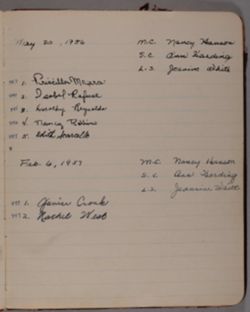 May 20, 1956
M.C. Nancy Hanson
S.C. Ann Harding
L.S. Jeannine White
1. Priscilla Meara
2. Isabel
3. Dorothy Reynolds
4. Nancy Robbins
5. Edith
Feb. 6, 1957
M.C. Nancy Hanson
S.C. Ann Harding
L.S. Jeannine White
1. Janice Cronk
2. Rachel West